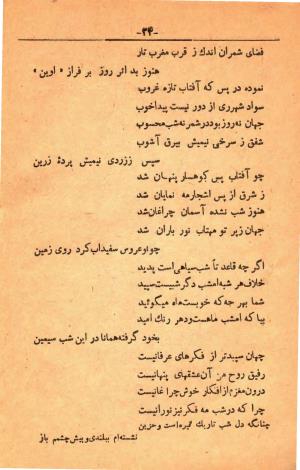 -۳۴-
فضای شمران اندك ز قرب مغرب تار
هنوز بد اثر روز بر فراز « اوین »
نموده در پس که آفتاب تازه غروب
سواد شهرری از دور نیست پیداخوب
جهان نه روز بود در شمر نه شب محسوب
شفق ز سرخی نیمیش بیرق آشوب
سپس ززردی نیمیش پردهٔ زرین
چو آفتاب پس کوهسار پنهان شد
ز شرق از پس اشجار مه نمایان شد
هنوز شب نشده آسمان چراغان شد
جهان زیر تو مهتاب نور باران شد
چو نوعروس سفیداب کرد روی زمین
اگر چه قاعد تاً شب سیاهی است پدید
خلاف هر شبه امشب دگر شبیست سپید
شما بهر چه که خوبست ماه میگوئید
بیا که امشب ماهست و دهر رنك امید
بخود گرفته همانا در این شب سیمین
جهان سپیدتر از فکرهای عرفانیست
رفیق روح من آن عشقهای پنهانیست
درون مغزم از افکار خوش چراغانیست
چرا که در شب مه فکر نیز نورانیست
چنانکه دل شب تاریك تیره است و حزین
نشسته‌ام ببلندی و پیش چشمم باز